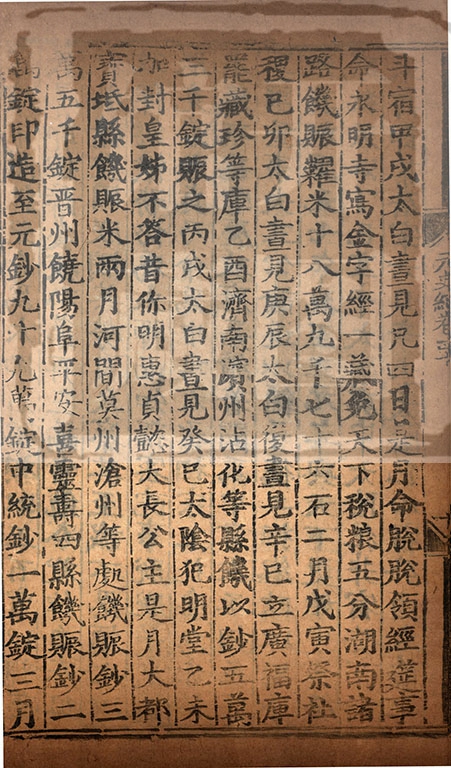 斗宿甲戌太白晝見凡四日是月命脫脫領經筵事
命永明寺寫金字經一藏免天下稅粮五分湖南諸
路饑賑糶米十八萬九千七十六石二月戊寅祭社
稷己卯太白晝見庚辰太白復晝見辛巳立廣福庫
罷藏珍等庫乙酉濟南濱州沾化等縣饑以鈔五萬
三千錠賑之丙戌太白晝見癸巳太陰犯明堂乙未
加封皇姊不答昔你明惠貞懿大長公主是月大都
寶坻縣饑賑米兩月河間莫州滄州等處饑賑鈔三
萬五千錠晋州饒陽阜平安喜靈壽四縣饑賑鈔二
萬錠印造至元鈔九十九萬錠中統鈔一萬錠三月
元史紀卷四十